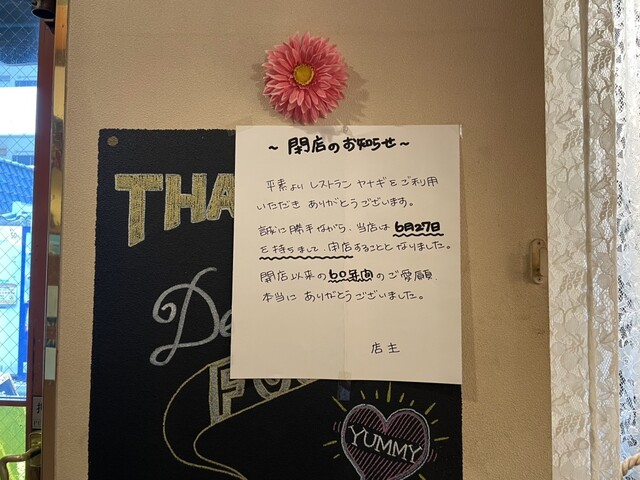 ～ 閉店のお知らせ ～
平素より レストラン ヤナギを ご利用
いただき ありがとうございます。
誠に勝手ながら、当店は 6月27日
を持ちまして、閉店することと なりました。
開店以来の 60年間の ご愛顧、
本当に ありがとうございました。
店主
THA
De
FOO
YUMMY